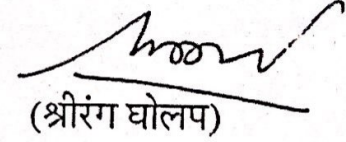 (श्रीरंग घोलप)